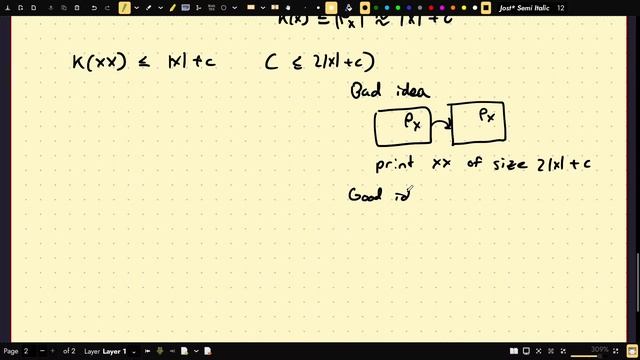 Jost* Semi Italic 12
K(x) ≤ |Px| ≈ |x| + c
K(xx) ≤ |x| + c ( ≤ 2|x| + c)
Bad idea
Px Px
print xx of size 2|x| + c
Good id
Page 2 of 2 Layer Layer 1 309%